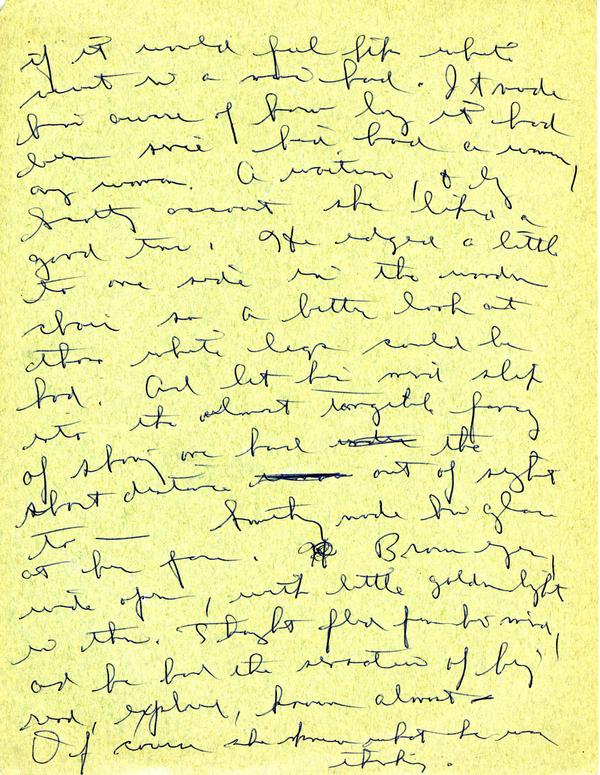 if it would feel like white
in a man's hand. It made
him aware of how long it had
been since he'd had a woman,
any woman. A waitress, & by
Scotty account she liked a
good time. He edged a little
to one side in the wooden
chair so a better look at
those white legs could be
had. And let his mind slip
into the almost tangible fancy
of sliding one hand the
short distance out of sight
to — Something made him glance
at her face. Brown eyes,
wide open, with little golden light
in them. Thought fled from his mind,
and he had the sensation of being
read, explored, known almost —
Of course she knew what he was
thinking.